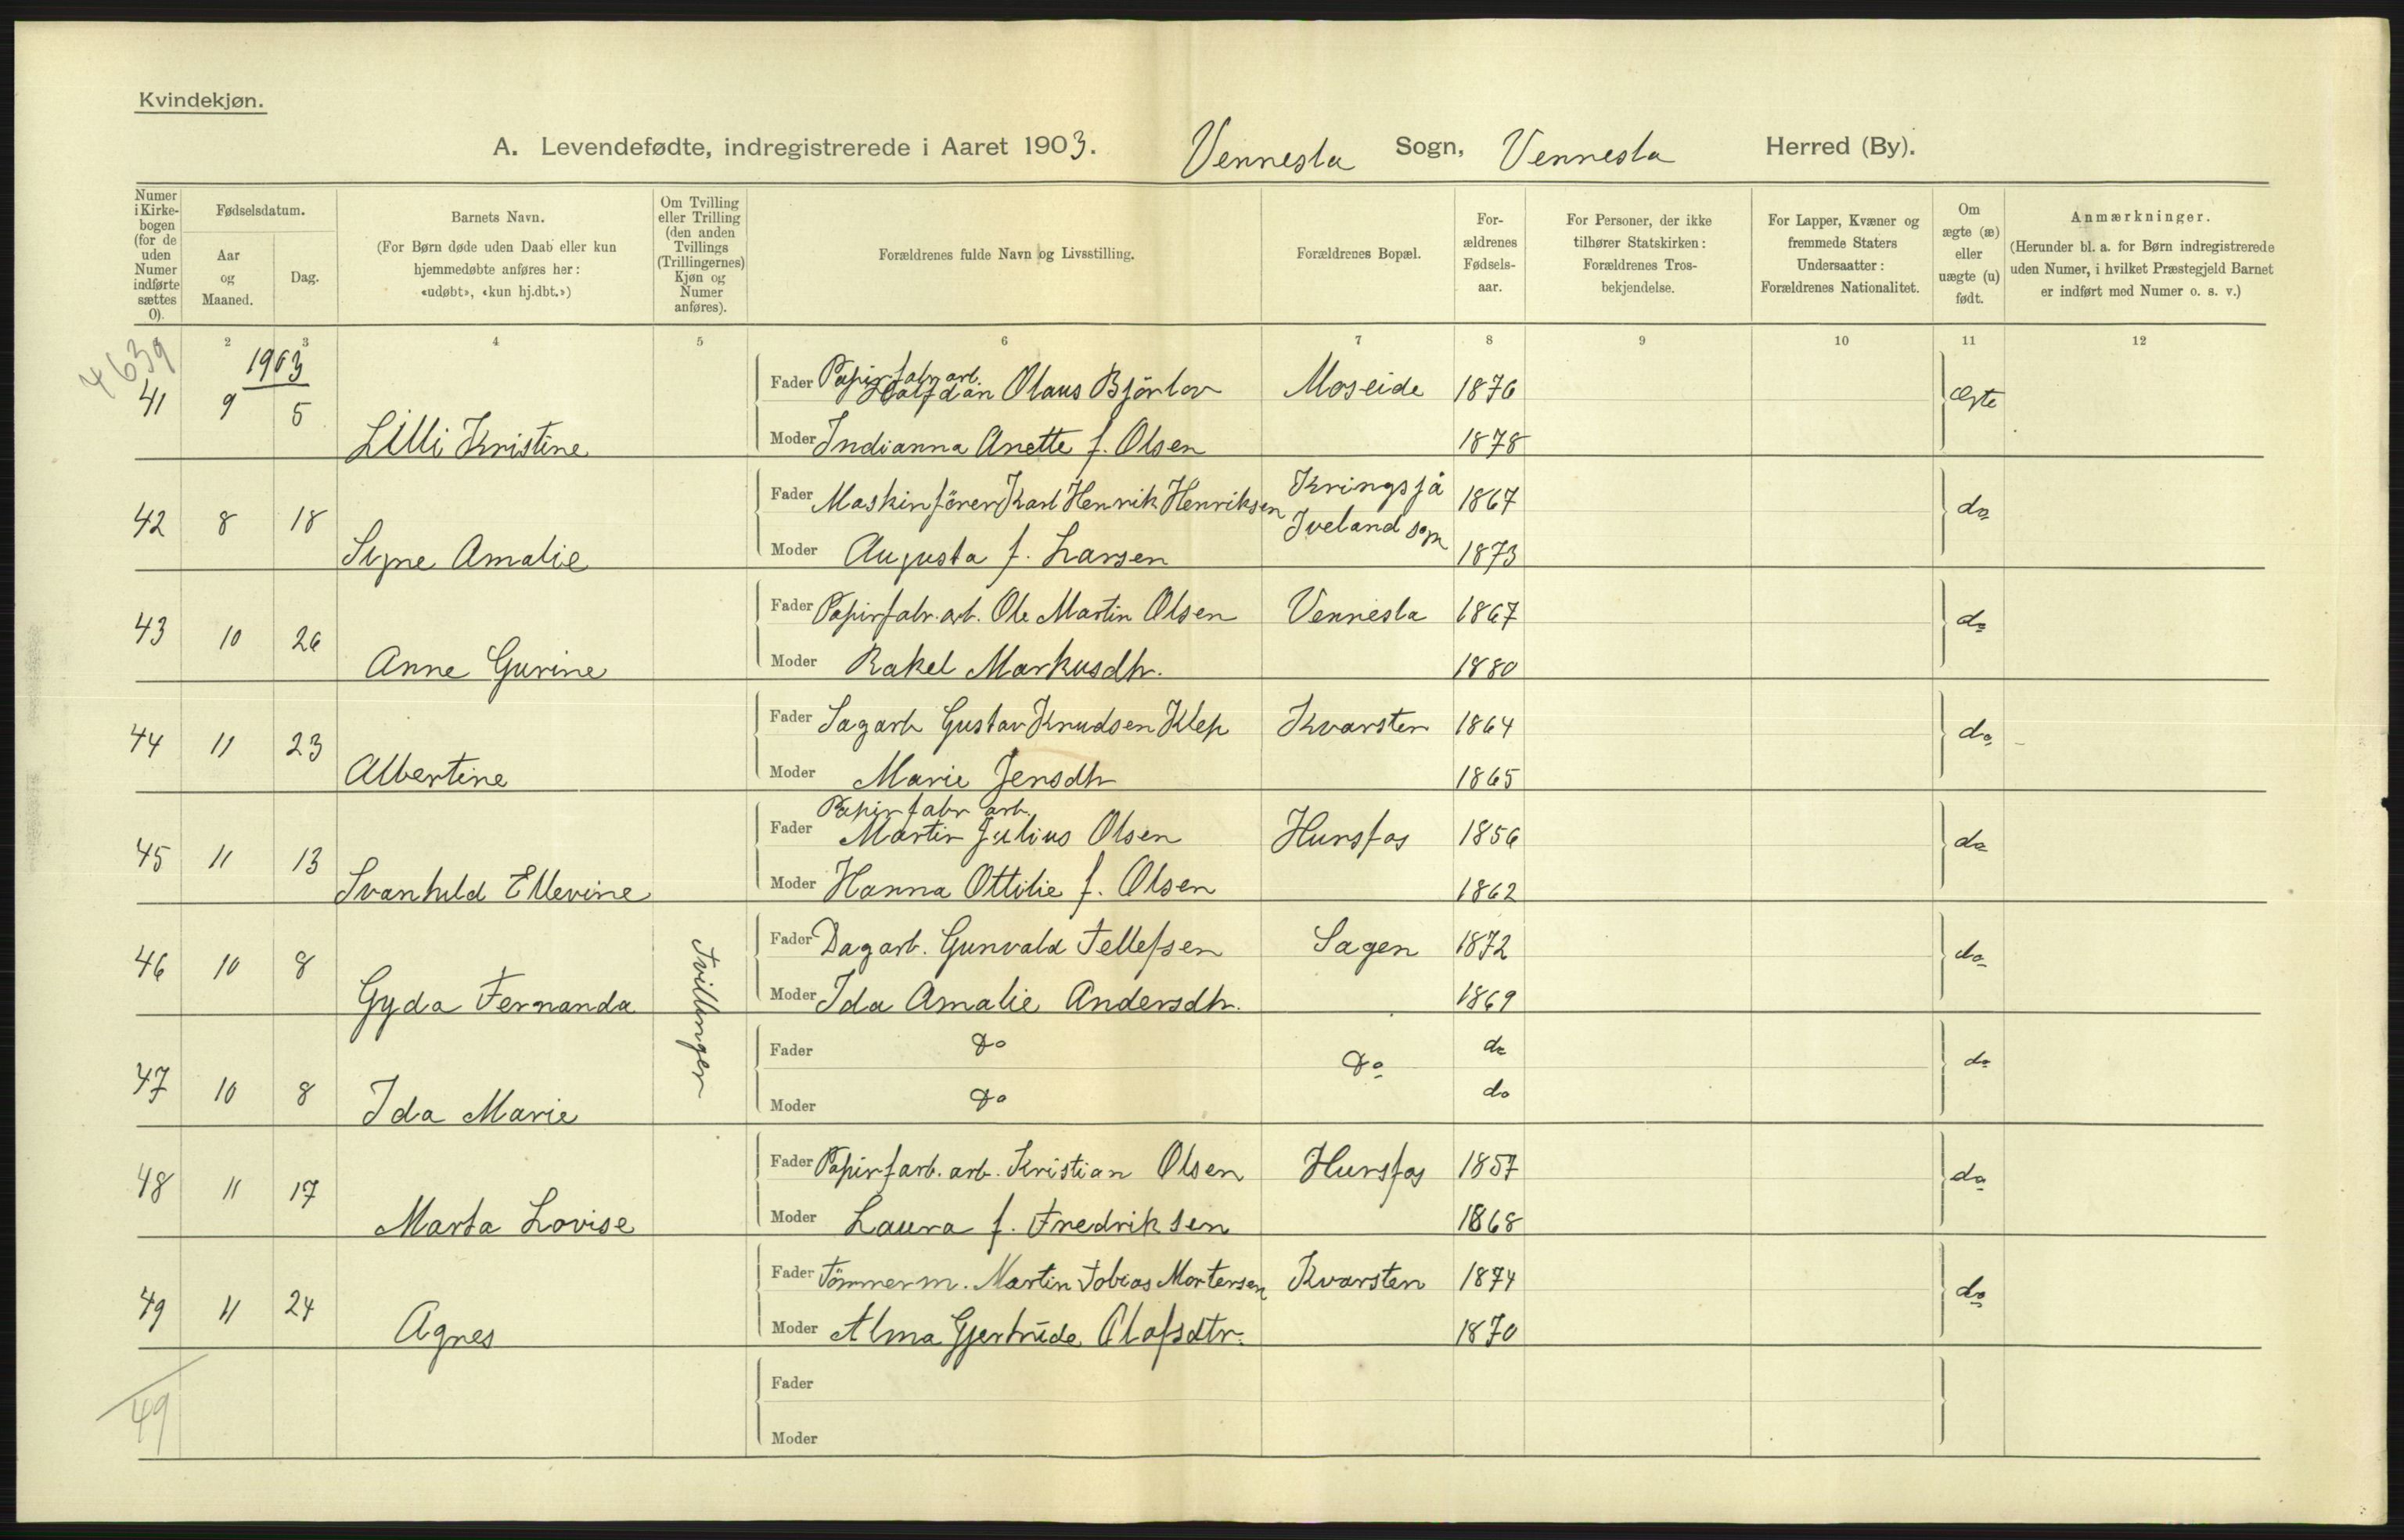 Kvindekjøn.
A. Levendefødte, indregistrerede i Aaret 1903. Vennesla Sogn, Vennesla Herred (By).
Numer i Kirkebogen (for de uden Numer indførte sættes 0).
Fødselsdatum.
Aar og Maaned.
Dag.
Barnets Navn.
(For Børn døde uden Daab eller kun hjemmedøbte anføres her: «udøbt», «kun hj.dbt.»)
Om Tvilling eller Trilling (den anden Tvillings (Trillingernes) Kjøn og Numer anføres).
Forældrenes fulde Navn og Livsstilling.
Forældrenes Bopæl.
Forældrenes Fødselsaar.
For Personer, der ikke tilhører Statskirken: Forældrenes Trosbekjendelse.
For Lapper, Kvæner og fremmede Staters Undersaatter: Forældrenes Nationalitet.
Om ægte (æ) eller uægte (u) født.
Anmærkninger.
(Herunder bl. a. for Børn indregistrerede uden Numer, i hvilket Præstegjeld Barnet er indført med Numer o. s. v.)
2 3 4 5 6 7 8 9 10 11 12
4639
1903
41 9 5 Lilli Kristine Fader Papirfabr arb. Halfdan Olaus Bjørlov Moseide 1876 Ægte
Moder Indianna Anette f. Olsen 1878
42 8 18 Signe Amalie Fader Maskinfører Karl Henrik Henriksen Kringsjå Iveland sogn 1867 do
Moder Augusta f. Larsen 1873
43 10 26 Anne Gurine Fader Papirfabr. arb. Ole Martin Olsen Vennesla 1867 do
Moder Rakel Markusdtr. 1880
44 11 23 Albertine Fader Sagarb Gustav Knudsen Klep Kvarsten 1864 do
Moder Marie Jensdtr 1865
45 11 13 Svanhild Ellevine Fader Papirfabr arb. Martin Julius Olsen Hunsfos 1856 do
Moder Hanna Ottilie f. Olsen 1862
46 10 8 Gyda Fernanda Tvillinger Fader Dagarb. Gunvald Tellefsen Sagen 1872 do
Moder Ida Amalie Andersdtr. 1869
47 10 8 Ida Marie Fader Do Do do do
Moder Do do
48 11 17 Marta Lovise Fader Papirfarb. arb. Kristian Olsen Hunsfos 1857 do
Moder Laura f. Fredriksen 1868
49 11 24 Agnes Fader Tömmerm. Martin Tobias Mortensen Kvarsten 1874 do
Moder Alma Gjertrude Olafsdtr. 1870
49
Fader
Moder